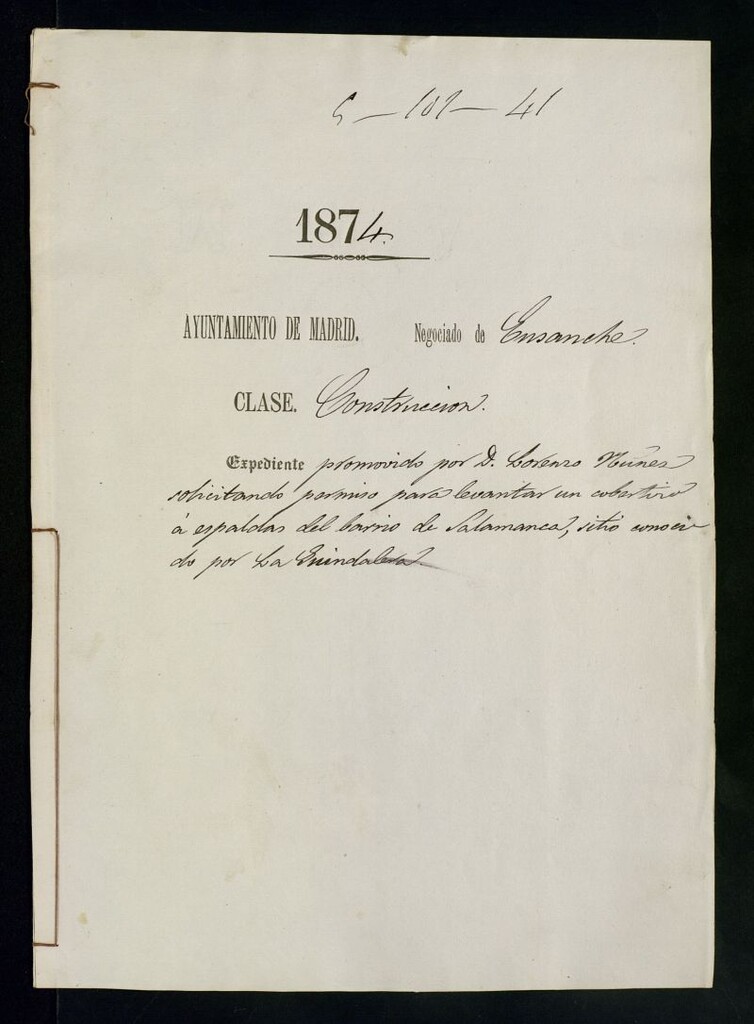 5 — 101 — 41
1874.
AYUNTAMIENTO DE MADRID. Negociado de Ensanche.
CLASE. Construccion.
Expediente promovido por D. Lorenzo Núñez
solicitando permiso para levantar un cobertizo
á espaldas del barrio de Salamanca, sitio conoci-
do por La Guindalera.